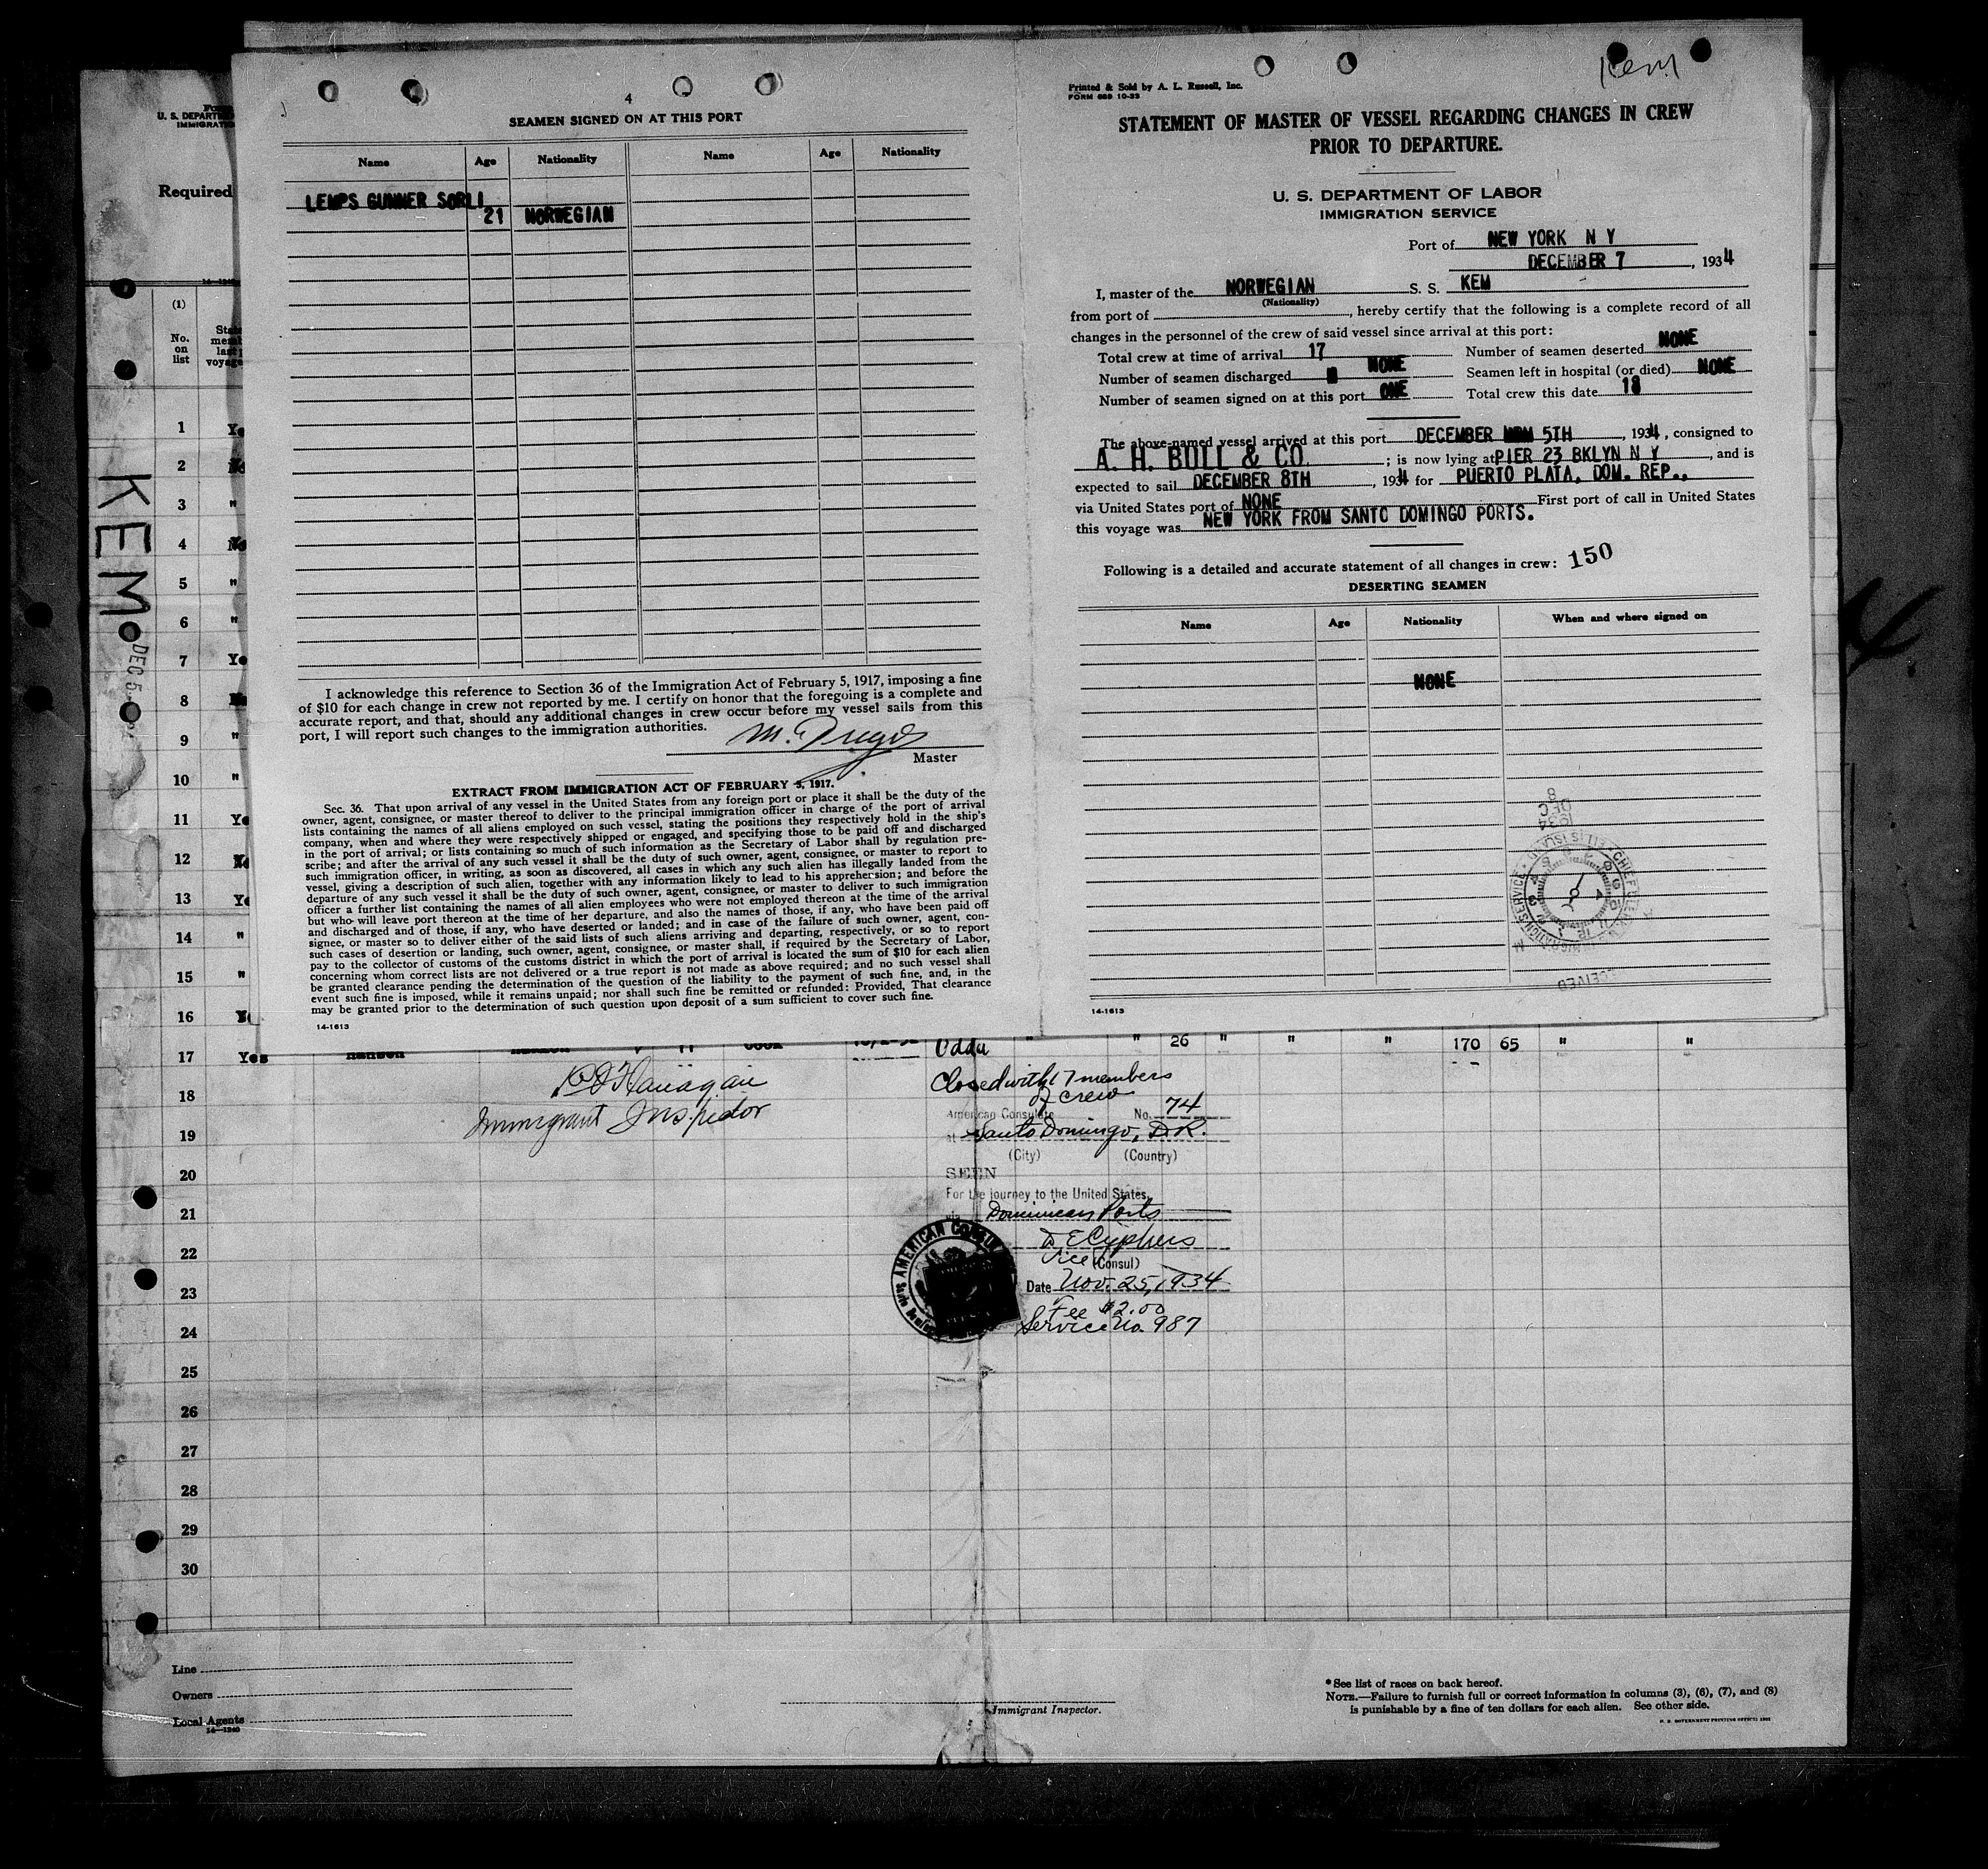 Form
U. S. DEPART
IMMIGRAT
Required
(1)
No.
on
list
KEM
DEC 5
4
SEAMEN SIGNED ON AT THIS PORT
Name Age Nationality Name Age Nationality
LEMPS GUNNER SORLI 21 NORWEGIAN
I acknowledge this reference to Section 36 of the Immigration Act of February 5, 1917, imposing a fine
of $10 for each change in crew not reported by me. I certify on honor that the foregoing is a complete and
accurate report, and that, should any additional changes in crew occur before my vessel sails from this
port, I will report such changes to the immigration authorities.
Master
EXTRACT FROM IMMIGRATION ACT OF FEBRUARY 5, 1917.
Sec. 36. That upon arrival of any vessel in the United States from any foreign port or place it shall be the duty of the
owner, agent, consignee, or master thereof to deliver to the principal immigration officer in charge of the port of arrival
lists containing the names of all aliens employed on such vessel, stating the positions they respectively hold in the ship's
company, when and where they were respectively shipped or engaged, and specifying those to be paid off and discharged
in the port of arrival; or lists containing so much of such information as the Secretary of Labor shall by regulation pre-
scribe; and after the arrival of any such vessel it shall be the duty of such owner, agent, consignee, or master to report to
such immigration officer, in writing, as soon as discovered, all cases in which any such alien has illegally landed from the
vessel, giving a description of such alien, together with any information likely to lead to his apprehension; and before the
departure of any such vessel it shall be the duty of such owner, agent, consignee, or master to deliver to such immigration
officer a further list containing the names of all alien employees who were not employed thereon at the time of the arrival
but who will leave port thereon at the time of her departure, and also the names of those, if any, who have been paid off
and discharged and of those, if any, who have deserted or landed; and in case of the failure of such owner, agent, con-
signee, or master so to deliver either of the said lists of such aliens arriving and departing, respectively, or so to report
such cases of desertion or landing, such owner, agent, consignee, or master shall, if required by the Secretary of Labor,
pay to the collector of customs of the customs district in which the port of arrival is located the sum of $10 for each alien
concerning whom correct lists are not delivered or a true report is not made as above required; and no such vessel shall
be granted clearance pending the determination of the question of the liability to the payment of such fine, and, in the
event such fine is imposed, while it remains unpaid; nor shall such fine be remitted or refunded: Provided, That clearance
may be granted prior to the determination of such question upon deposit of a sum sufficient to cover such fine.
14-1613
Kem
Printed & Sold by A. L. Russell, Inc.
FORM 689 10-33
STATEMENT OF MASTER OF VESSEL REGARDING CHANGES IN CREW
PRIOR TO DEPARTURE.
U. S. DEPARTMENT OF LABOR
IMMIGRATION SERVICE
Port of NEW YORK N Y
DECEMBER 7, 1934
I, master of the NORWEGIAN S. S. KEM
(Nationality)
from port of , hereby certify that the following is a complete record of all
changes in the personnel of the crew of said vessel since arrival at this port:
Total crew at time of arrival 17 Number of seamen deserted NONE
Number of seamen discharged NONE Seamen left in hospital (or died) NONE
Number of seamen signed on at this port ONE Total crew this date 18
The above-named vessel arrived at this port DECEMBER 5TH, 1934, consigned to
A. H. BULL & CO. ; is now lying at PIER 23 BKLYN N Y, and is
expected to sail DECEMBER 8TH, 1934 for PUERTO PLATA, DOM. REP.,
via United States port of NONE First port of call in United States
this voyage was NEW YORK FROM SANTO DOMINGO PORTS.
Following is a detailed and accurate statement of all changes in crew: 150
DESERTING SEAMEN
Name Age Nationality When and where signed on
NONE
1934
DEC
8
14-1613
1 Ye
2
3 "
4 No
5 "
6 "
7 Ye
8
9 "
10 "
11 Ye
12
13 Ye
14 "
15 "
16
17 Yes Cook Odda " " 26 " " " 170 65 " "
18
Immigrant Inspector
Closed with 17 members
of crew
19
American Consulate No. 74
at Santo Domingo, D.R.
(City) (Country)
20
SEEN
For the journey to the United States,
21
via Dominican Ports
22
E Cyphers
Vice (Consul)
AMERICAN CONSUL
23
Date Nov. 25, 1934
Fee $2.00
24
Service No. 987
25
26
27
28
29
30
Line
Owners
Local Agents
14-1240
Immigrant Inspector.
* See list of races on back hereof.
NOTE.—Failure to furnish full or correct information in columns (3), (6), (7), and (8)
is punishable by a fine of ten dollars for each alien. See other side.